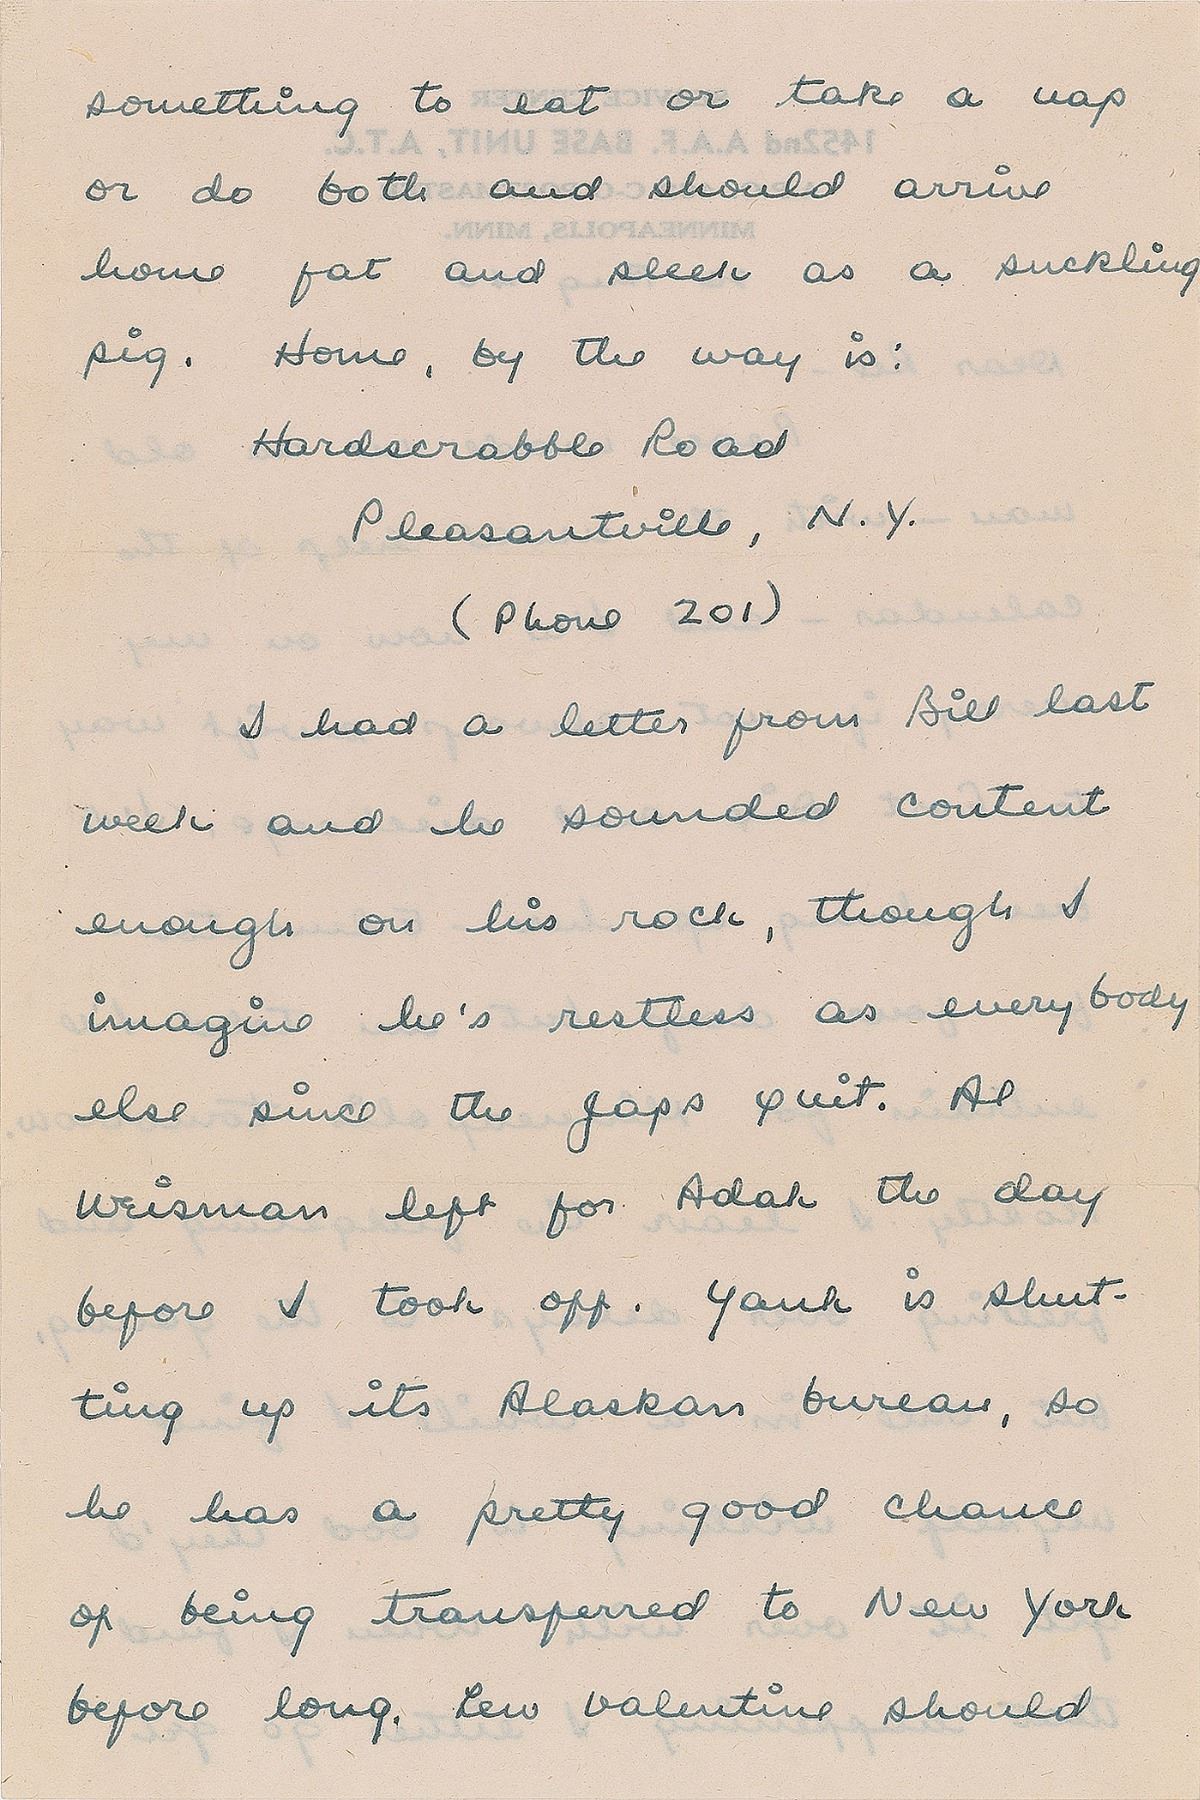 something to eat or take a nap
or do both and should arrive
home fat and sleek as a suckling
pig. Home, by the way is:
Hardscrabble Road
Pleasantville, N.Y.
(Phone 201)
I had a letter from Bill last
week and he sounded content
enough on his rock, though I
imagine he's restless as everybody
else since the Japs quit. Al
Weisman left for Adak the day
before I took off. Yank is shut-
ting up its Alaskan bureau, so
he has a pretty good chance
of being transferred to New York
before long. Lew Valentine should
SERVICE CENTER
1452nd A.A.F. BASE UNIT, A.T.C.
MINNEAPOLIS, MINN.